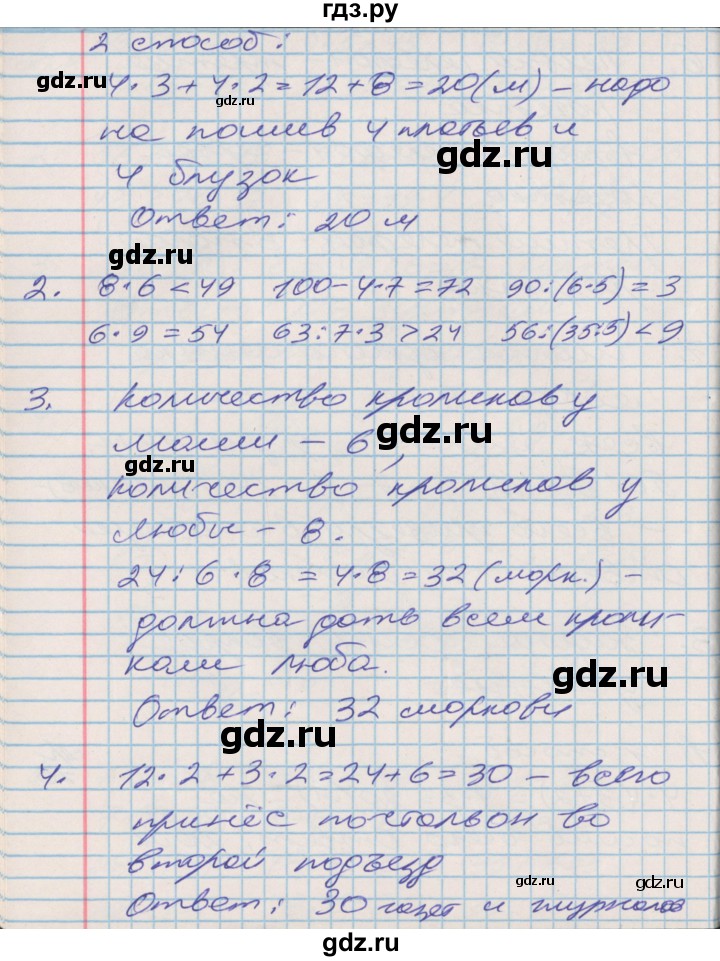 гдз.ру
2 способ:
4·3+4·2=12+8=20(м) – надо
gdz.ru
на пошив 4 платьев и
gdz.ru
4 блузок
Ответ: 20 м
gdz.ru
2. 8·6<49 100-4·7=72 90:(6·5)=3
6·9=54 63:7·3>24 56:(35:5)<9
3. Количество кроликов у
Маши – 6,
gdz.ru
gdz.ru
Количество кроликов у
Любы – 8.
24:6·8=4·8=32(морк.) –
должна дать всем кроли-
ками Люба.
gdz.ru
Ответ: 32 моркови
gdz.ru
4. 12·2+3·2=24+6=30 – всего
принёс почтальон во
второй подъезд
gdz.ru
Ответ: 30 газет и журналов
gdz.ru
gdz.ru